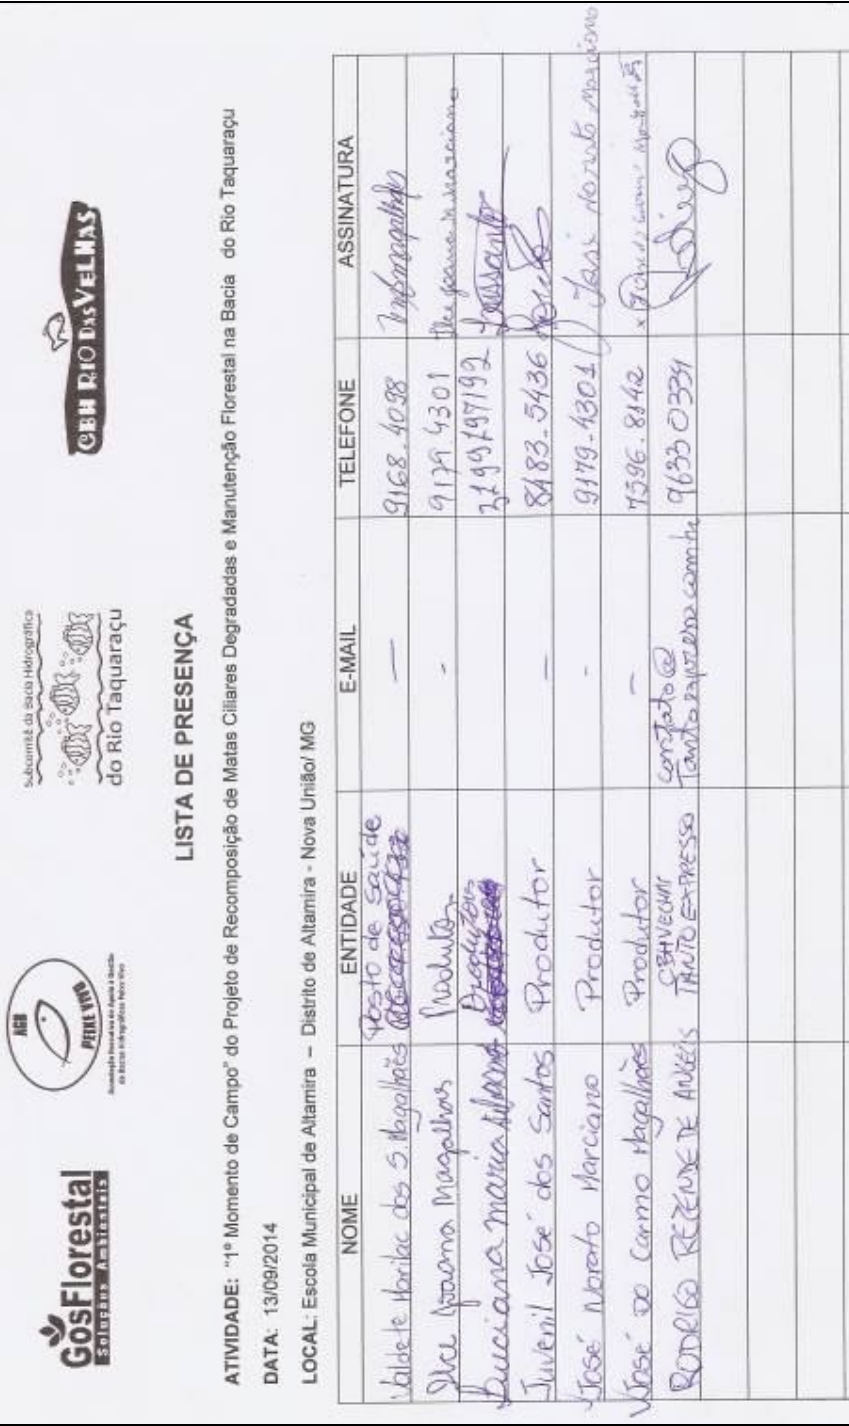 GosFlorestal
Soluções Ambientais
AGB
PEIXE VIVO
Associação Executiva de Apoio à Gestão
de Bacias Hidrográficas Peixe Vivo
Subcomitê da Bacia Hidrográfica
do Rio Taquaraçu
CBH RIO DAS VELHAS
LISTA DE PRESENÇA
ATIVIDADE: "1º Momento de Campo" do Projeto de Recomposição de Matas Ciliares Degradadas e Manutenção Florestal na Bacia do Rio Taquaraçu
DATA: 13/09/2014
LOCAL: Escola Municipal de Altamira – Distrito de Altamira - Nova União/ MG
NOME ENTIDADE E-MAIL TELEFONE ASSINATURA
Valdete Marilac dos S. Magalhães Posto de Saúde — 9168.4098
Joana Magalhães Produtor - 9179.4301
Luciana Maria 3199797192
Juvenil José dos Santos Produtor — 8483-5436
José Norato Marciano Produtor - 9179-4301 José Norato Marciano
José do Carmo Magalhães Produtor — 7596.8142
RODRIGO REZENDE DE ANGELIS CBHVELHAS TANTO EXPRESSO contato@ tantoexpresso.com.br 9633 0334 Rodrigo